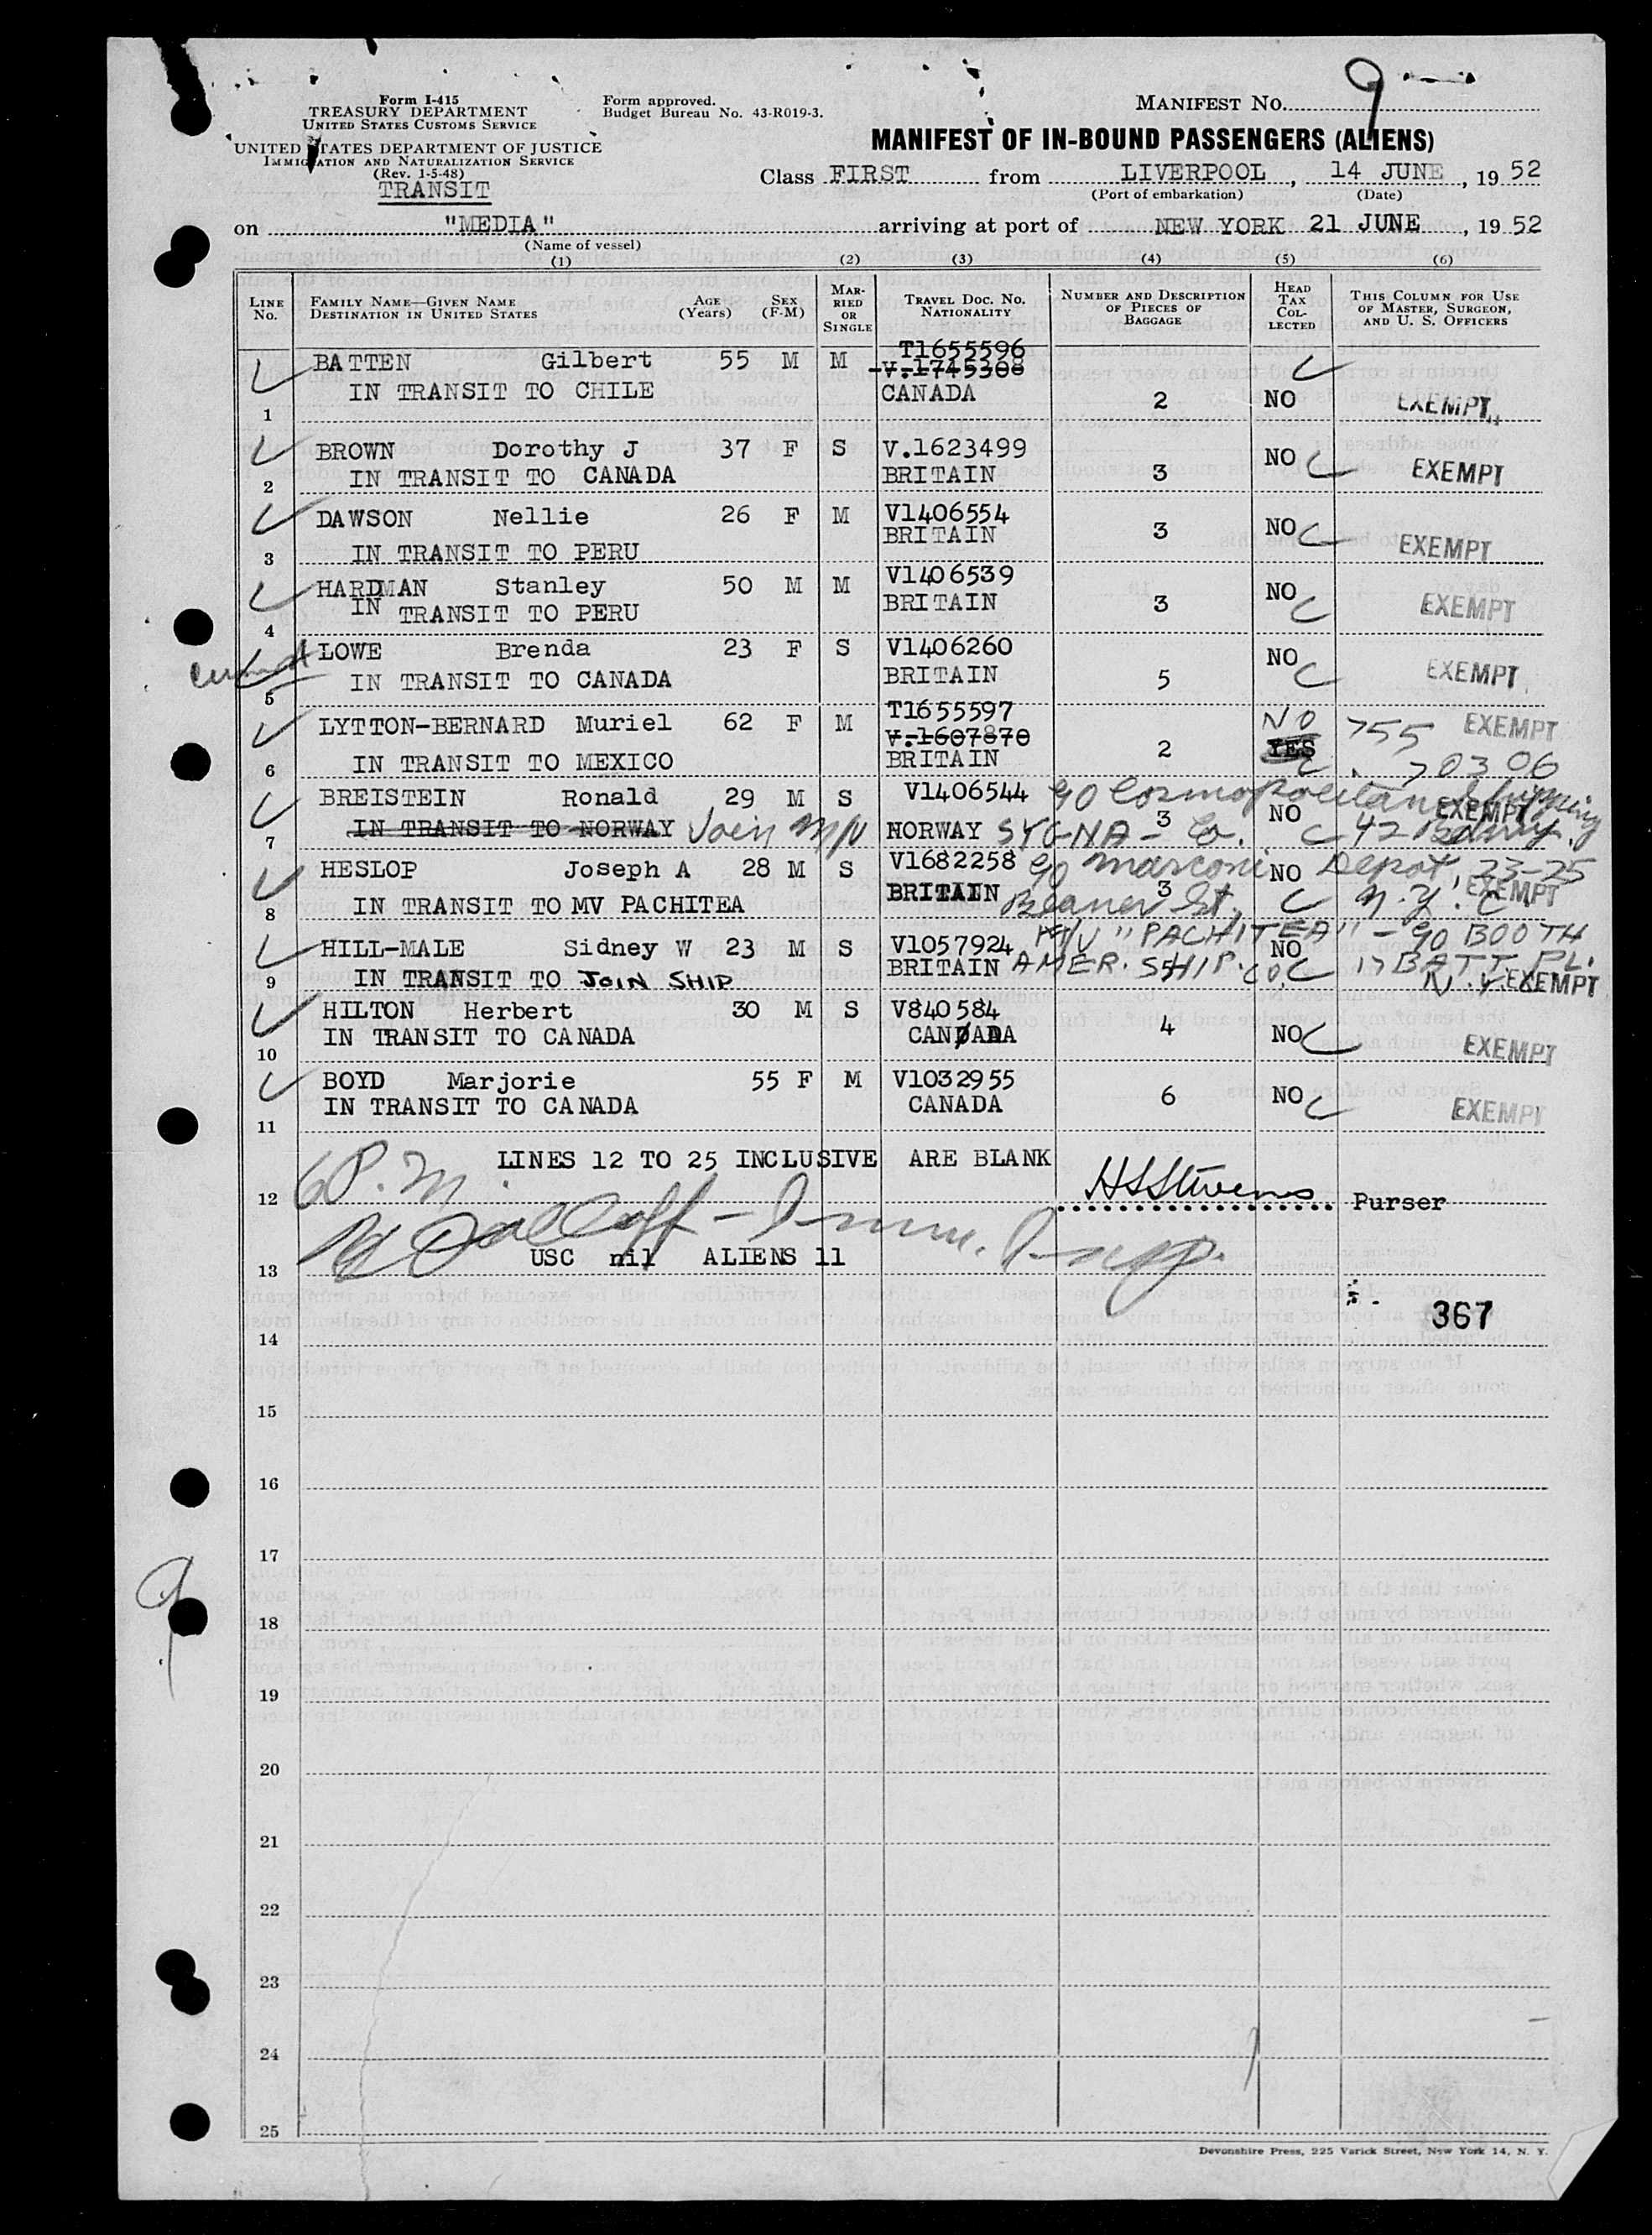 9
Form I-415
TREASURY DEPARTMENT
UNITED STATES CUSTOMS SERVICE
Form approved.
Budget Bureau No. 43-R019-3.
MANIFEST NO.
UNITED STATES DEPARTMENT OF JUSTICE
IMMIGRATION AND NATURALIZATION SERVICE
(Rev. 1-5-48)
TRANSIT
MANIFEST OF IN-BOUND PASSENGERS (ALIENS)
Class FIRST from LIVERPOOL, 14 JUNE, 19 52
(Port of embarkation) (Date)
on "MEDIA" arriving at port of NEW YORK 21 JUNE, 19 52
(Name of vessel)
(1) (2) (3) (4) (5) (6)
LINE NO. FAMILY NAME—GIVEN NAME DESTINATION IN UNITED STATES AGE (YEARS) SEX (F-M) MARRIED OR SINGLE TRAVEL DOC. NO. NATIONALITY NUMBER AND DESCRIPTION OF PIECES OF BAGGAGE HEAD TAX COLLECTED THIS COLUMN FOR USE OF MASTER, SURGEON, AND U. S. OFFICERS
T1655596
BATTEN Gilbert 55 M M V.1745308
IN TRANSIT TO CHILE CANADA 2 NO EXEMPT
1
BROWN Dorothy J 37 F S V.1623499 NO
IN TRANSIT TO CANADA BRITAIN 3 EXEMPT
2
DAWSON Nellie 26 F M V1406554 NO
BRITAIN 3 EXEMPT
3 IN TRANSIT TO PERU
HARDMAN Stanley 50 M M V1406539 NO
IN TRANSIT TO PERU BRITAIN 3 EXEMPT
4
LOWE Brenda 23 F S V1406260 NO
IN TRANSIT TO CANADA BRITAIN 5 EXEMPT
5
T1655597
LYTTON-BERNARD Muriel 62 F M V.1607870 NO 755 EXEMPT
YES
6 IN TRANSIT TO MEXICO BRITAIN 2 C 70306
BREISTEIN Ronald 29 M S V1406544 c/o Cosmopolitan Shipping
IN TRANSIT TO NORWAY Join M/V NORWAY SYGNA - Co. 3 NO C 42 Bdwy. EXEMPT
7
HESLOP Joseph A 28 M S V1682258 c/o Marconi NO Depot, 23-25
IN TRANSIT TO MV PACHITEA BRITAIN Beaver St. 3 C N.Y.C. EXEMPT
8
HILL-MALE Sidney W 23 M S V1057924 M/V "PACHITEA" - c/o BOOTH
IN TRANSIT TO JOIN SHIP BRITAIN AMER. SHIP. CO. NO C 17 BATT. PL.
9 N.Y. EXEMPT
HILTON Herbert 30 M S V840584
IN TRANSIT TO CANADA CANADA 4 NO EXEMPT
10
BOYD Marjorie 55 F M V1032955
IN TRANSIT TO CANADA CANADA 6 NO EXEMPT
11
6 P.M. LINES 12 TO 25 INCLUSIVE ARE BLANK
12 HSStivens Purser
Imm. Insp.
USC nil ALIENS 11
13
367
14
15
16
17
9
18
19
20
21
22
23
24
25
Devonshire Press, 225 Varick Street, New York 14, N. Y.